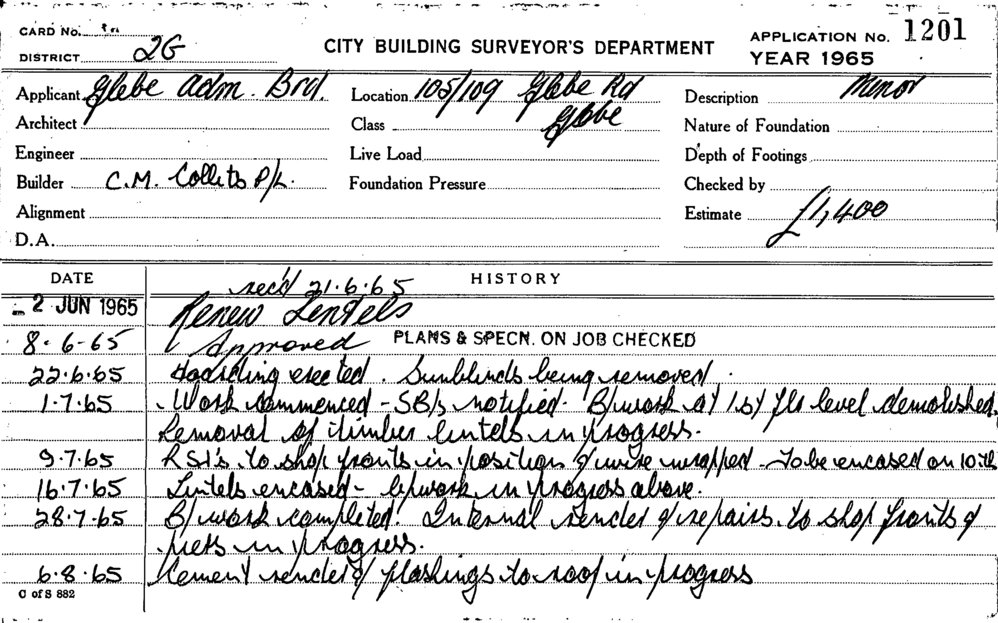 CARD No.
DISTRICT 2G
CITY BUILDING SURVEYOR'S DEPARTMENT
APPLICATION No. 1201
YEAR 1965
Applicant Glebe Adm. Brd.
Location 105/109 Glebe Rd
Glebe
Description Minor
Architect
Class
Nature of Foundation
Engineer
Live Load
Depth of Footings
Builder C.M. Collits P/L.
Foundation Pressure
Checked by
Alignment
Estimate £1,400
D.A.
DATE
HISTORY
rec'd 21.6.65
2 JUN 1965 Renew Lentels
8.6.65 Approved PLANS & SPECN. ON JOB CHECKED
22.6.65 Hoarding erected. Sunblinds being removed.
1.7.65 Work commenced - SB/s notified. B/work at 1st flr level demolished.
Removal of timber lintels in progress.
9.7.65 RSJ's to shop fronts in position & wire wrapped - To be encased on 10th
16.7.65 Lintels encased - b/work in progress above.
28.7.65 B/work completed. Internal render & repairs to shop fronts &
piers in progress.
6.8.65 Cement render & flashings to roof in progress
C of S 882